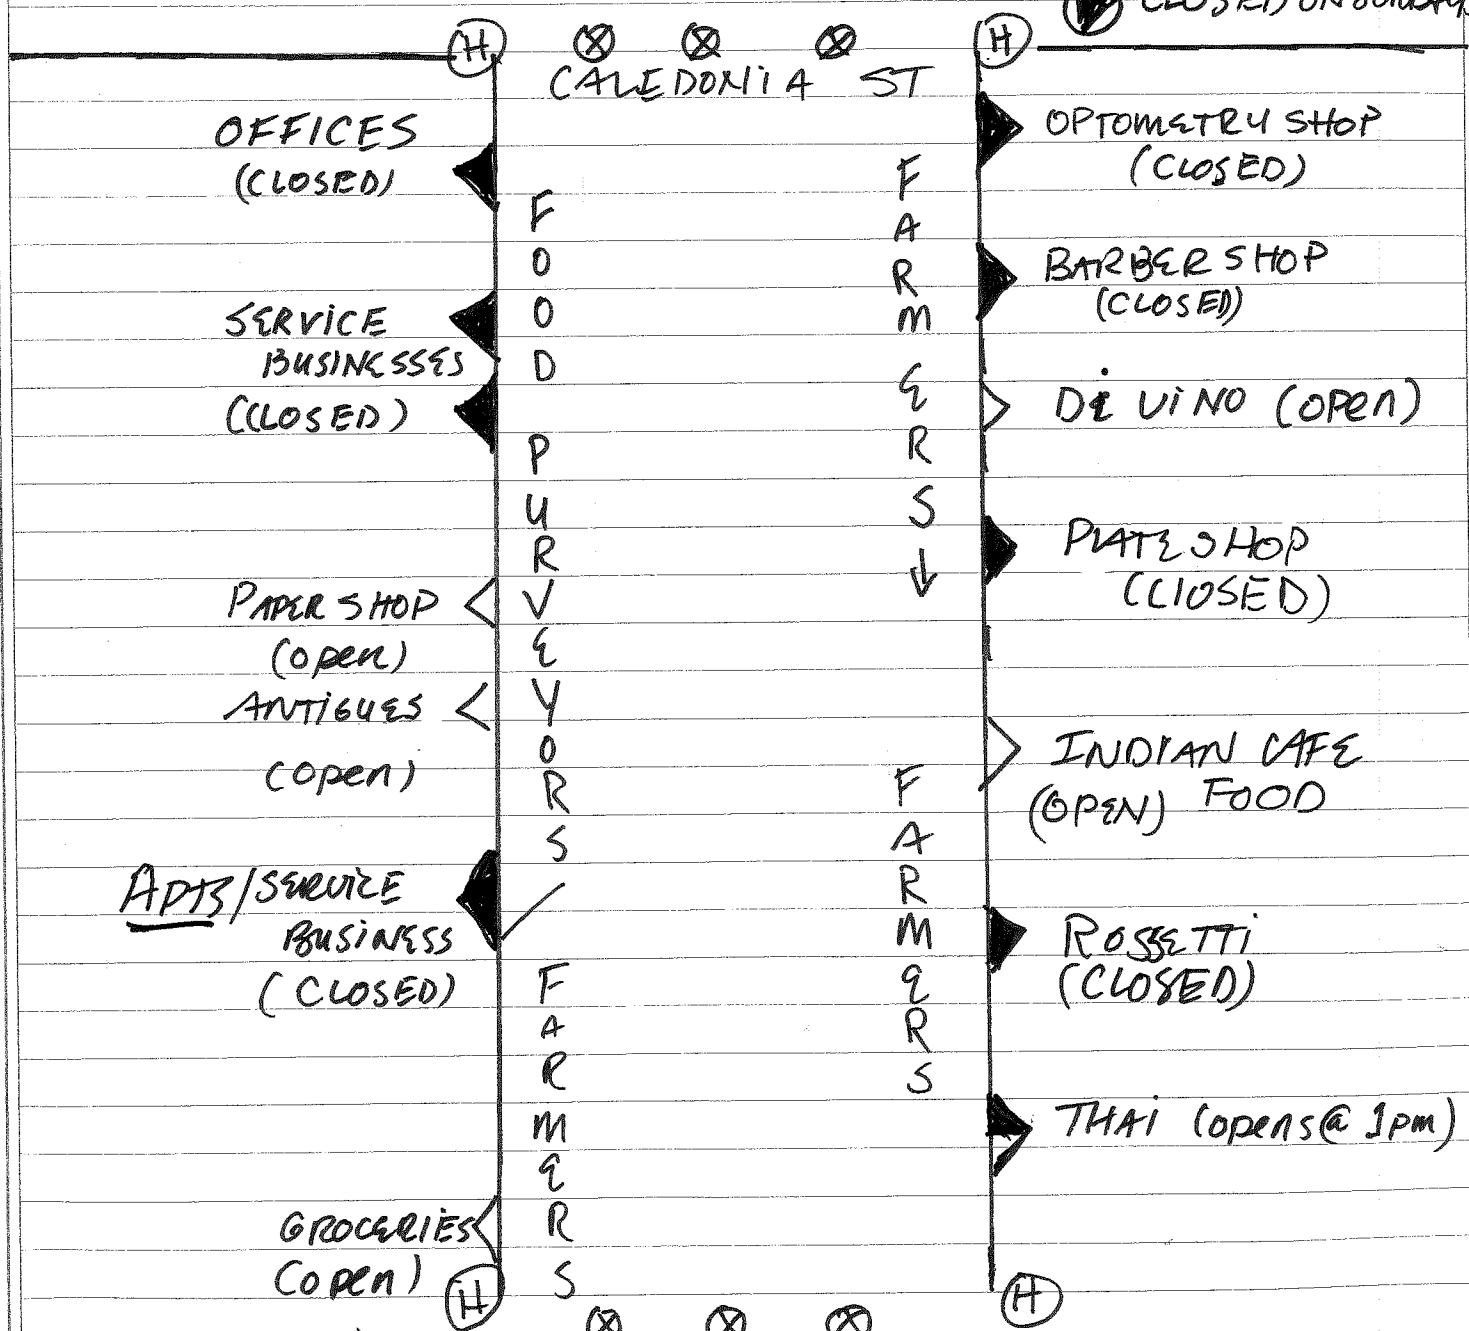 CLOSED ON SUNDAYS
H H
CALEDONIA ST
OFFICES
(CLOSED)
SERVICE
BUSINESSES
(CLOSED)
PAPER SHOP
(open)
ANTIQUES
(open)
APTS/SERVICE
BUSINESS
(CLOSED)
GROCERIES
(open)
H
FOOD PURVEYORS
FARMERS
FARMERS
FARMERS
OPTOMETRY SHOP
(CLOSED)
BARBER SHOP
(CLOSED)
Di ViNO (open)
PLATE SHOP
(ClOSED)
INDIAN CAFE
(OPEN) FOOD
ROSSETTi
(CLOSED)
THAi (opens@ 1pm)
H